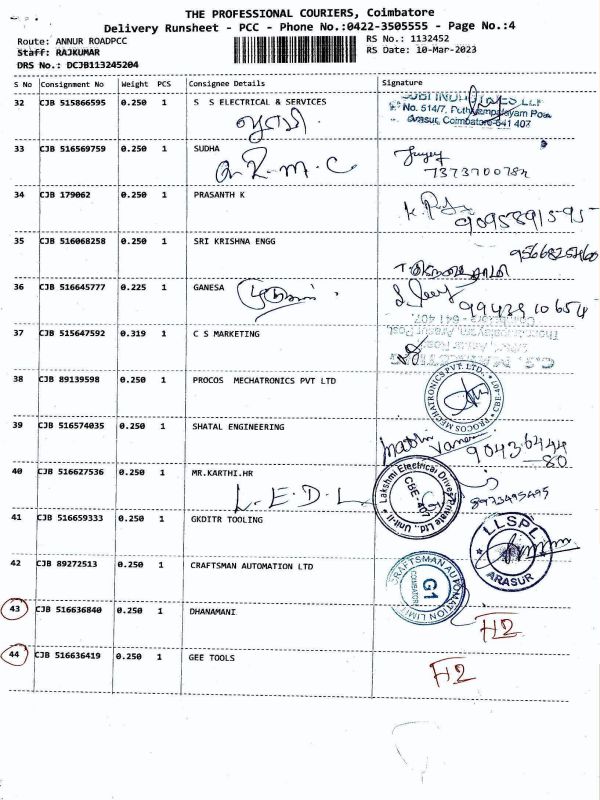 THE PROFESSIONAL COURIERS, Coimbatore
Delivery Runsheet - PCC - Phone No.:0422-3505555 - Page No.:4
Route: ANNUR ROADPCC
RS No.: 1132452
Staff: RAJKUMAR
RS Date: 10-Mar-2023
DRS No.: DCJB113245204
S No Consignment No Weight PCS Consignee Details Signature
32 CJB 515866595 0.250 1 S S ELECTRICAL & SERVICES
No. 514/7,
Arasur, Coimbatore-641 407
33 CJB 516569759 0.250 1 SUDHA
34 CJB 179062 0.250 1 PRASANTH K
9095891595
35 CJB 516068258 0.250 1 SRI KRISHNA ENGG
36 CJB 516645777 0.225 1 GANESA
9942910654
37 CJB 515647592 0.319 1 C S MARKETING
38 CJB 89139598 0.250 1 PROCOS MECHATRONICS PVT LTD
PROCOS MECHATRONICS PVT. LTD. CBE-407
39 CJB 516574035 0.250 1 SHATAL ENGINEERING
40 CJB 516627536 0.250 1 MR.KARTHI.HR
L.E.D.L
Lakshmi Electrical Drives Private Ltd., Unit-II
CBE-407
41 CJB 516659333 0.250 1 GKDITR TOOLING
LLSPL
ARASUR
42 CJB 89272513 0.250 1 CRAFTSMAN AUTOMATION LTD
CRAFTSMAN AUTOMATION LIMITED
G1
COIMBATORE
43 CJB 516636840 0.250 1 DHANAMANI
H2
44 CJB 516636419 0.250 1 GEE TOOLS
H2